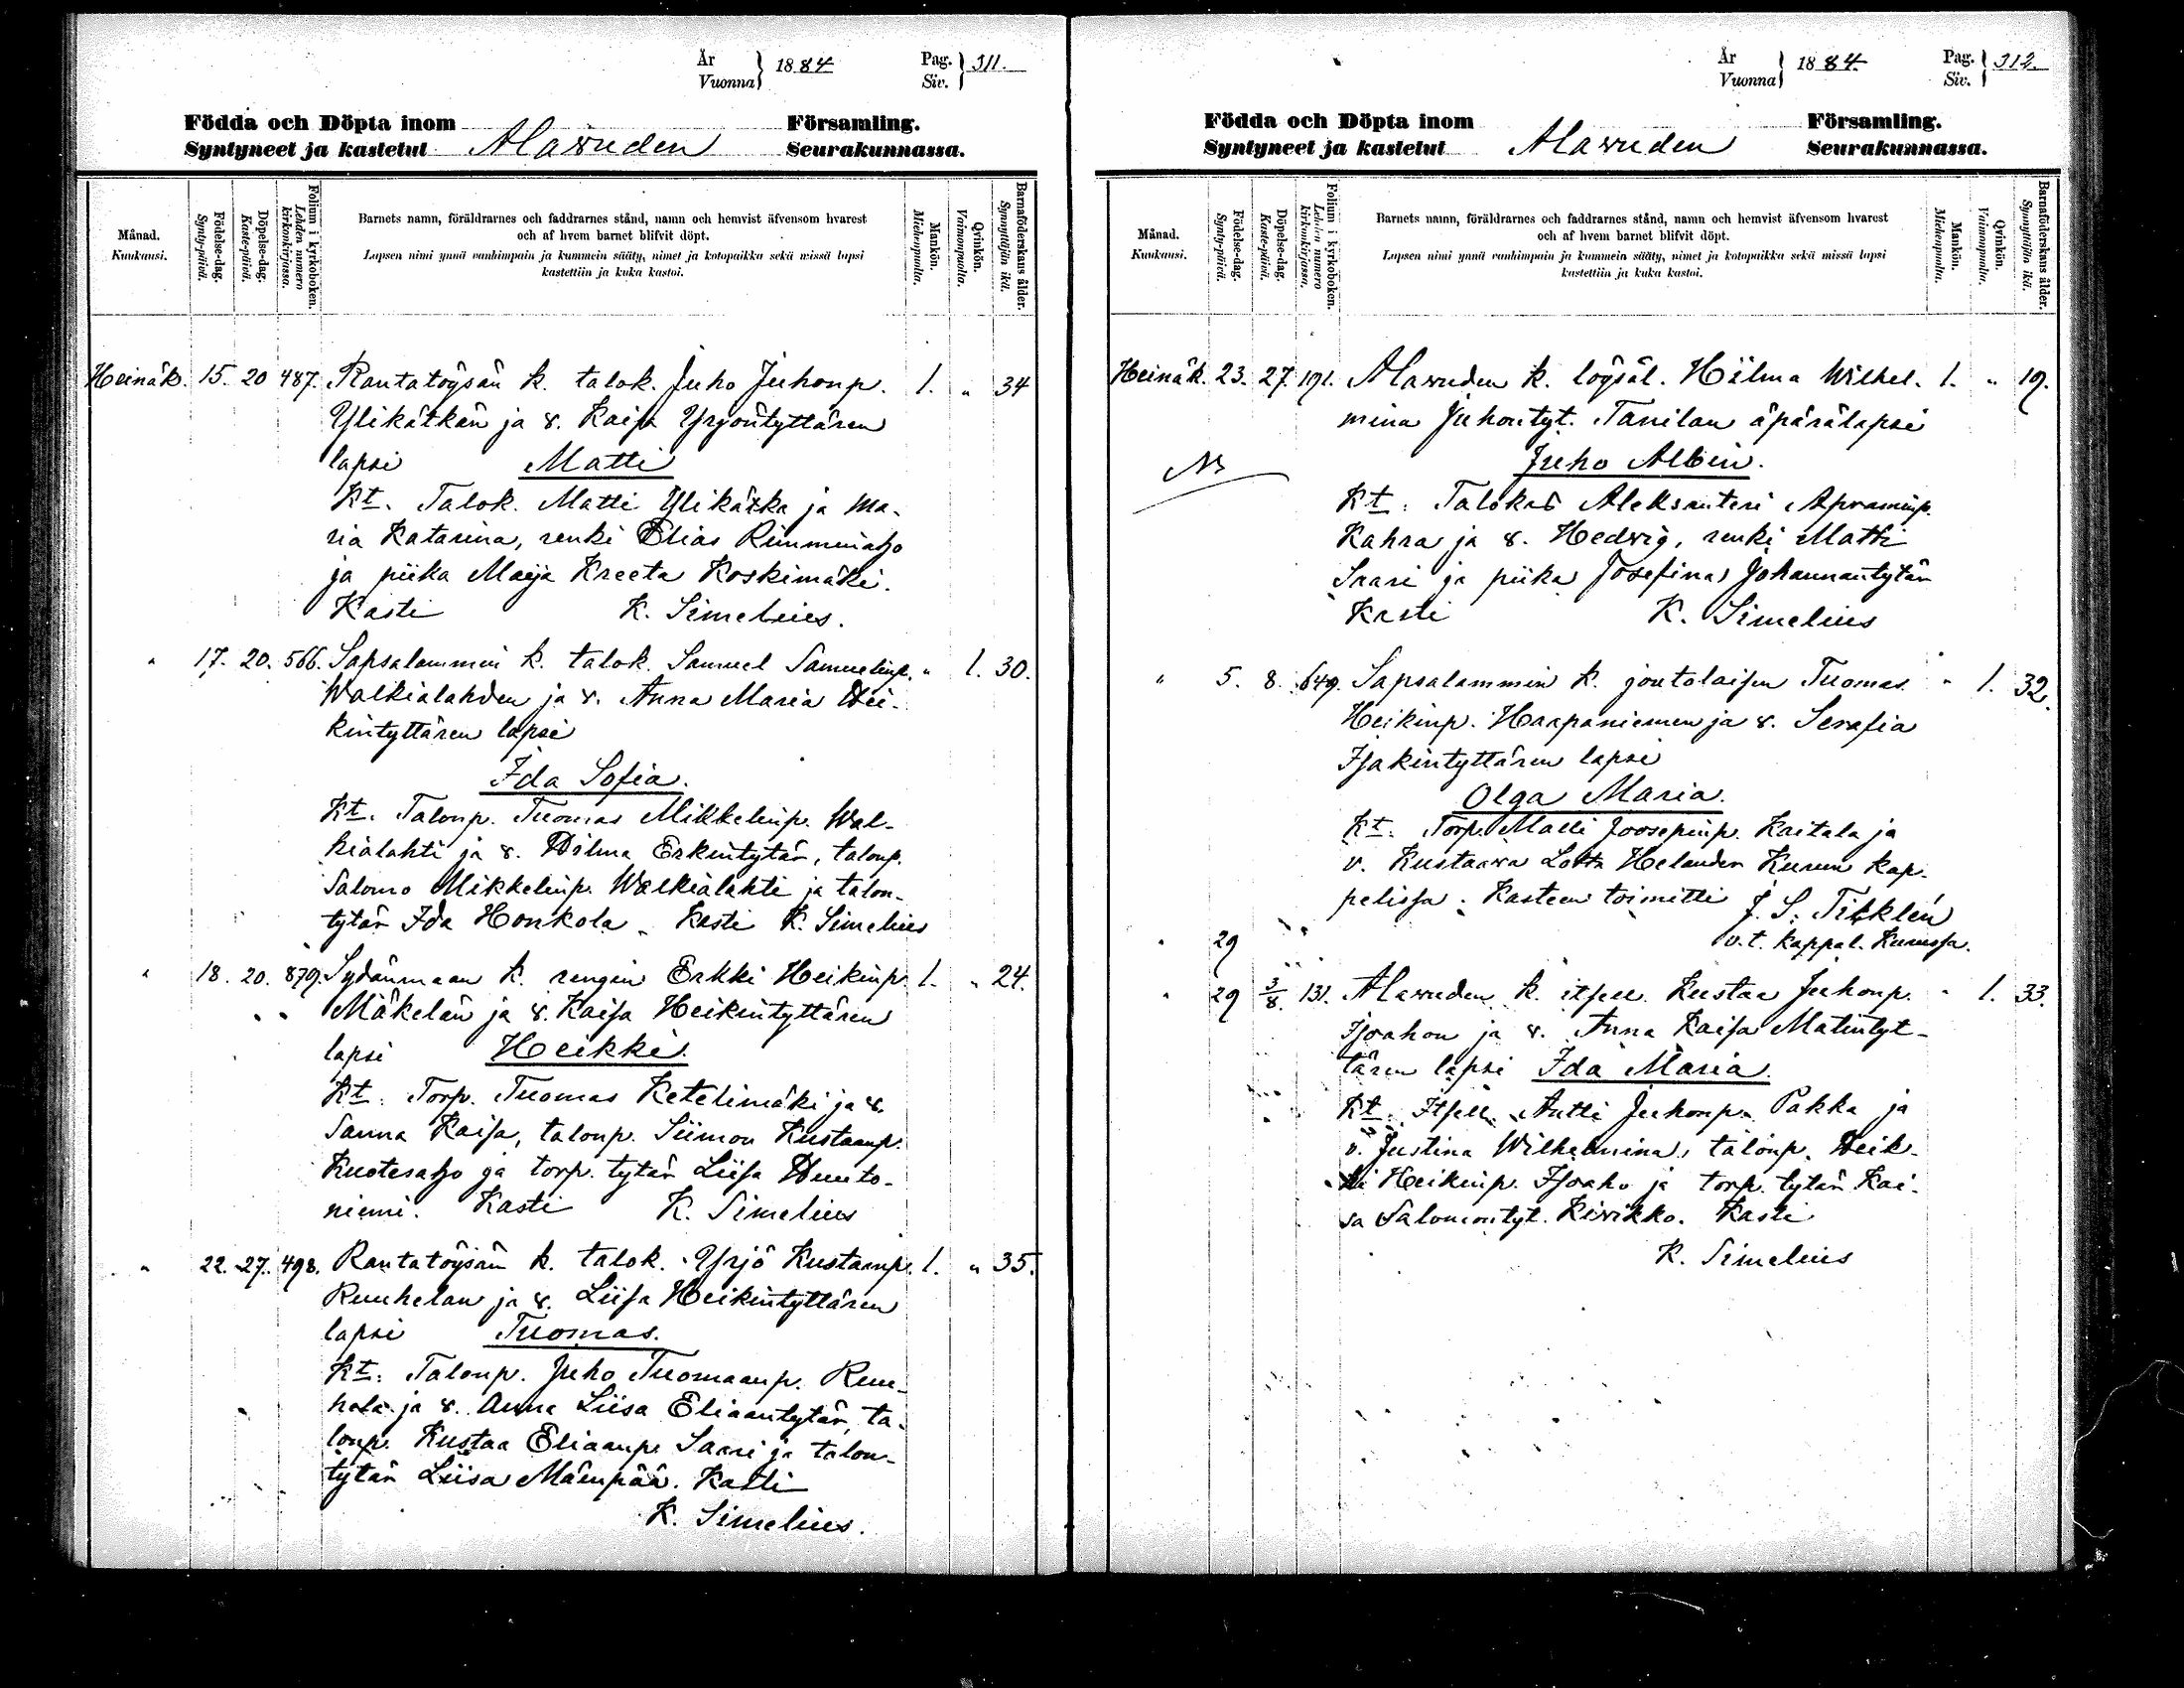 År
Vuonna } 1884
Pag.
Siv. } 311.
Födda och Döpta inom Församling.
Syntyneet ja kastetut Alavuden Seurakunnassa.
Månad.
Kuukausi.
Födelse-dag.
Synty-päivä.
Döpelse-dag.
Kaste-päivä.
Folium i kyrkoboken.
Lehden numero
kirkonkirjassa.
Barnets namn, föräldrarnes och faddrarnes stånd, namn och hemvist äfvensom hvarest
och af hvem barnet blifvit döpt.
Lapsen nimi ynnä vanhimpain ja kummein sääty, nimet ja kotopaikka sekä missä lapsi
kastettiin ja kuka kastoi.
Mankön.
Miehenpuolta.
Qvinkön.
Vaimonpuolta.
Barnaföderskans ålder.
Synnyttäjän ikä.
Heinäk. 15. 20 487. Rantatöysän k. talok. Juho Juhonp. 1. " 34
Ylikätkän ja v. Kaisa Yrjöntyttären
lapsi Matti
Kt. Talok. Matti Ylikätka ja Ma-
ria Katarina, renki Elias Rimminaho
ja piika Maija Kreeta Koskimäki.
Kasti K. Simelius.
" 17. 20. 566. Sapsalammin k. talok. Samuel Samuelinp. " 1. 30.
Walkialahden ja v. Anna Maria Hei-
kintyttären lapsi
Ida Sofia.
Kt. Talonp. Tuomas Mikkelinp. Wal-
kialahti ja v. Hilma Erkintytär, talonp.
Salomo Mikkelinp. Walkialahti ja talon-
tytär Ida Honkola. Kasti K. Simelius
" 18. 20. 879. Sydänmaan k. rengin Erkki Heikinp. 1. " 24.
Mäkelän ja v. Kaisa Heikintyttären
lapsi Heikki.
Kt: Torp. Tuomas Ketelimäki ja v.
Sanna Kaisa, talonp. Siimon Kustaanp.
Kuotesaho ja torp. tytär Liisa Huuto-
niemi. Kasti K. Simelius
" 22. 27. 498. Rantatöysän k. talok. Yrjö Kustaanp. 1. " 35.
Ruuhelan ja v. Liisa Heikintyttären
lapsi Tuomas.
Kt: Talonp. Juho Tuomaanp. Ruu-
hela ja v. Anna Liisa Eliaantytär, ta-
lonp. Kustaa Eliaanp. Saari ja talon-
tytär Liisa Mäenpää. Kasti
K. Simelius.
År
Vuonna } 1884.
Pag.
Siv. } 312.
Födda och Döpta inom Församling.
Syntyneet ja kastetut Alavuden Seurakunnassa.
Månad.
Kuukausi.
Födelse-dag.
Synty-päivä.
Döpelse-dag.
Kaste-päivä.
Folium i kyrkoboken.
Lehden numero
kirkonkirjassa.
Barnets namn, föräldrarnes och faddrarnes stånd, namn och hemvist äfvensom hvarest
och af hvem barnet blifvit döpt.
Lapsen nimi ynnä vanhimpain ja kummein sääty, nimet ja kotopaikka sekä missä lapsi
kastettiin ja kuka kastoi.
Mankön.
Miehenpuolta.
Qvinkön.
Vaimonpuolta.
Barnaföderskans ålder.
Synnyttäjän ikä.
Heinäk. 23. 27. 191. Alavuden k. löysäl. Hilma Wilhel- 1. " 19.
mina Juhontyt. Tanilan äpärälapsi
Juho Albin.
Kt: Talokas Aleksanteri Apraminp.
Kahra ja v. Hedvig, renki Matti
Saari ja piika Josefina Johannantytär
Kasti K. Simelius
" 5. 8. 649. Sapsalammin k. joutolaisen Tuomas " 1. 32.
Heikinp. Haapaniemen ja v. Serafia
Isakintyttären lapsi
Olga Maria.
Kt: Torp. Matti Joosepinp. Kaitala ja
v. Kustaava Lotta Helander Kurun kap-
pelissa. Kasteen toimitti J. S. Ticklén
" 29 v.t. kappal. Kurussa.
" 29 3/8. 131. Alavuden k. itsell. Kustaa Juhonp. " 1. 33.
Isoahon ja v. Anna Kaisa Matintyt-
tären lapsi Ida Maria.
Kt. Itsell. Antti Juhonp. Pakka ja
v. Justina Wilhelmina, talonp. Heik-
ki Heikinp. Isoaho ja torp. tytär Kai-
sa Salomontyt. Kivikko. Kasti
K. Simelius